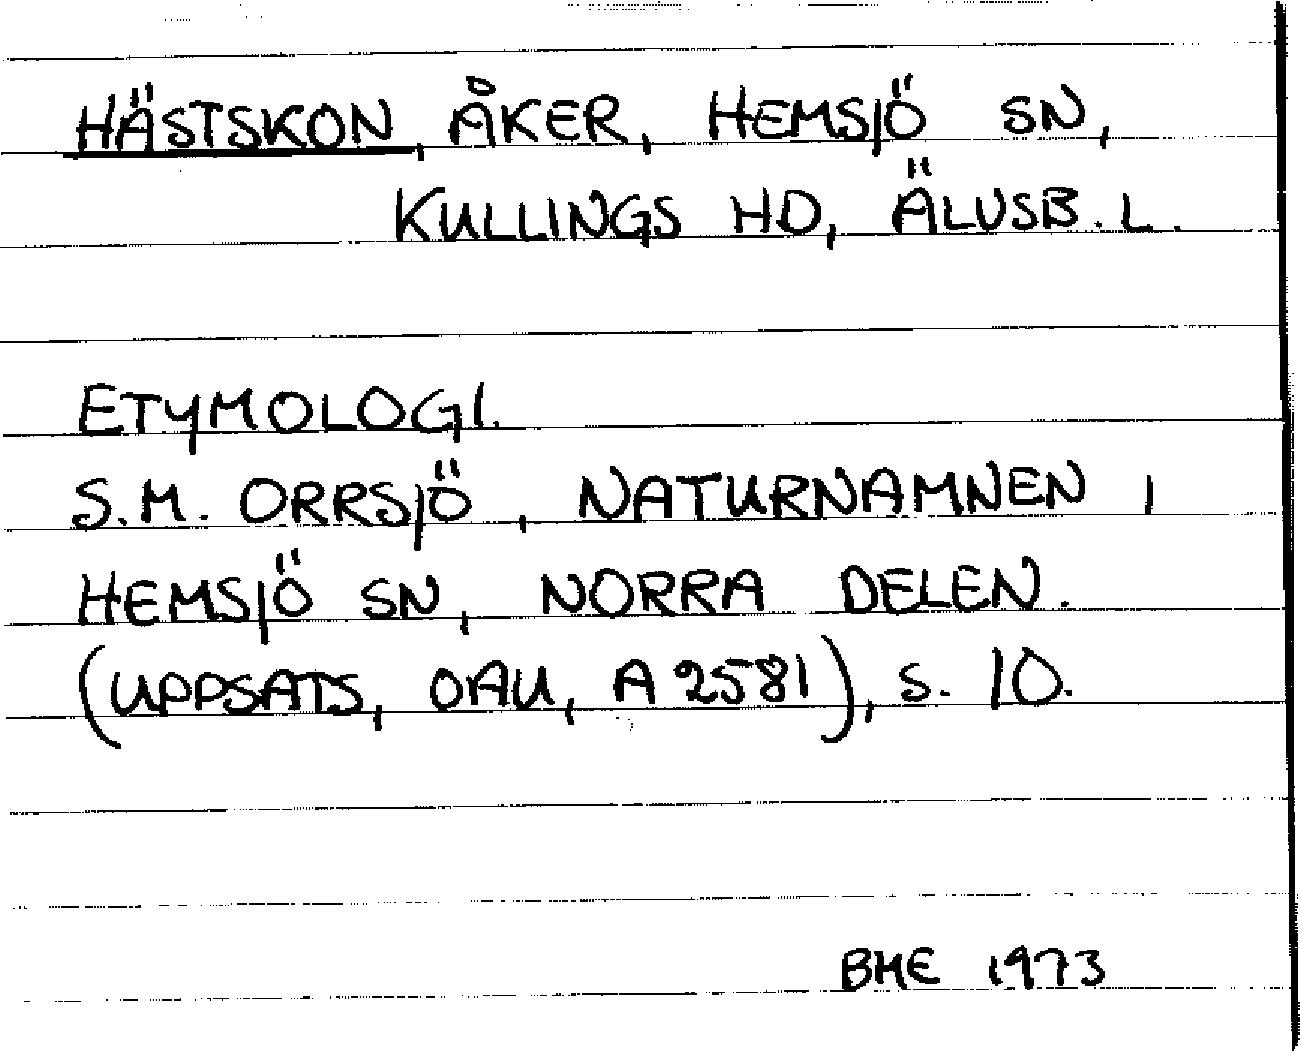 HÄSTSKON, ÅKER, HEMSJÖ SN,
KULLINGS HD, ÄLVSB. L.
ETYMOLOGI.
S.M. ORRSJÖ, NATURNAMNEN I
HEMSJÖ SN, NORRA DELEN.
(UPPSATS, OAU, A 2581), S. 10.
BME 1973